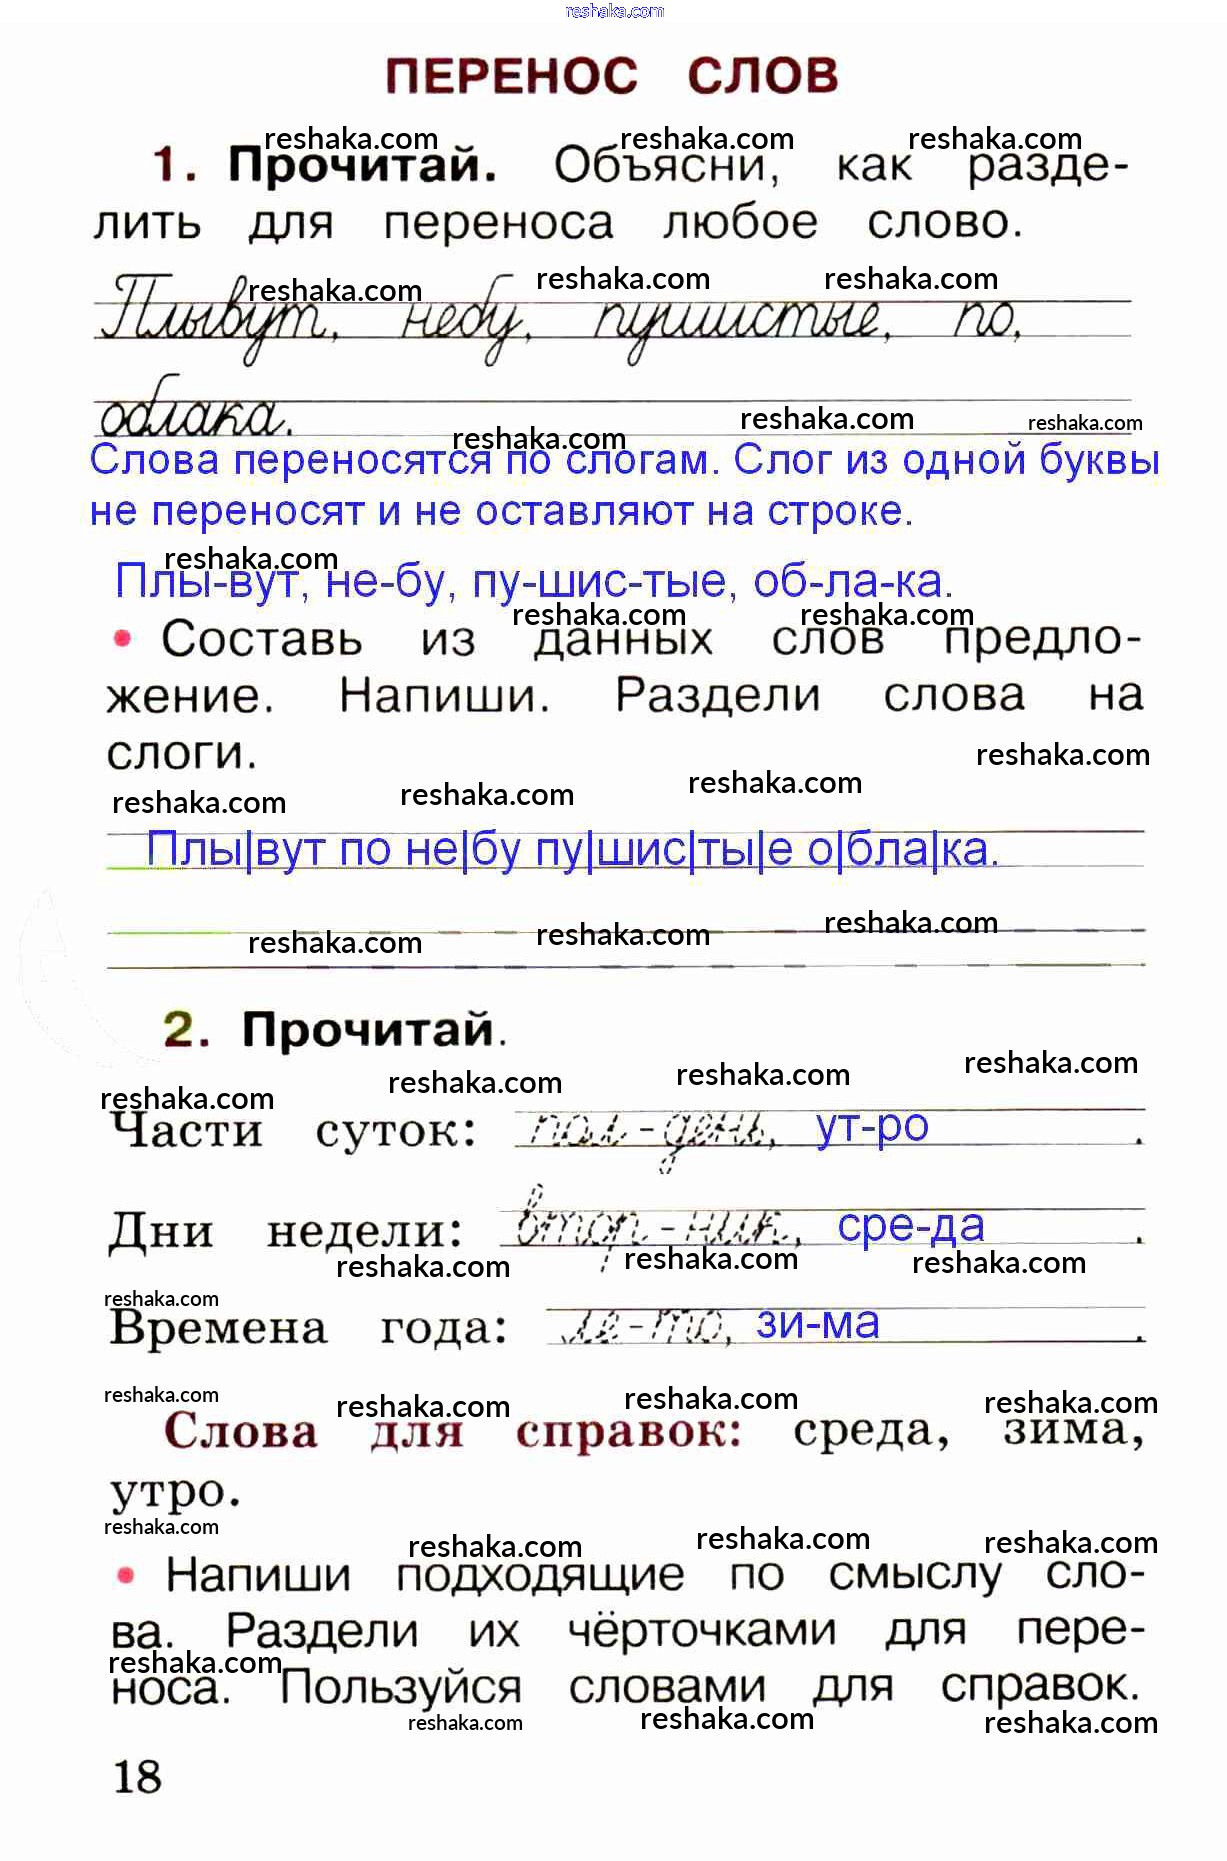 reshaka.com
ПЕРЕНОС СЛОВ
reshaka.com reshaka.com reshaka.com
1. Прочитай. Объясни, как разде-
лить для переноса любое слово.
reshaka.com reshaka.com reshaka.com
Плывут, небу, пушистые, по,
облака.
reshaka.com reshaka.com reshaka.com
Слова переносятся по слогам. Слог из одной буквы
не переносят и не оставляют на строке.
reshaka.com
Плы-вут, не-бу, пу-шис-тые, об-ла-ка.
reshaka.com reshaka.com
• Составь из данных слов предло-
жение. Напиши. Раздели слова на
слоги.
reshaka.com
reshaka.com reshaka.com reshaka.com
Плы|вут по не|бу пу|шис|ты|е о|бла|ка.
reshaka.com reshaka.com reshaka.com
2. Прочитай.
reshaka.com reshaka.com reshaka.com reshaka.com
Части суток: пол-день, ут-ро.
Дни недели: втор-ник, сре-да.
reshaka.com reshaka.com reshaka.com
reshaka.com
Времена года: ле-то, зи-ма.
reshaka.com reshaka.com reshaka.com reshaka.com
Слова для справок: среда, зима,
утро.
reshaka.com reshaka.com reshaka.com reshaka.com
• Напиши подходящие по смыслу сло-
ва. Раздели их чёрточками для пере-
reshaka.com
носа. Пользуйся словами для справок.
reshaka.com reshaka.com reshaka.com
18